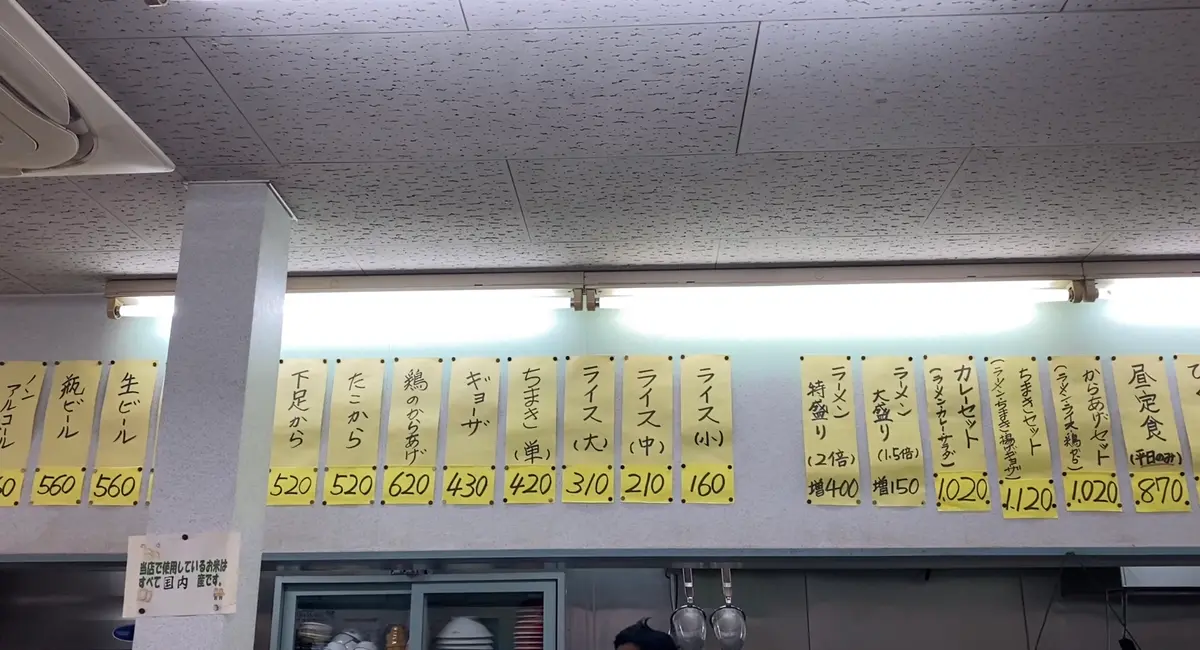 昼定食
(平日のみ)
870
からあげセット
(ラーメン・ライス・鶏から)
1.020
ちまきセット
(ラーメン・ちまき・揚ギョーザ)
1.120
カレーセット
(ラーメン・カレー・サラダ)
1.020
ラーメン
大盛り
(1.5倍)
増150
ラーメン
特盛り
(2倍)
増400
ライス(小)
160
ライス(中)
210
ライス(大)
310
ちまき(単)
420
ギョーザ
430
鶏のからあげ
620
たこから
520
下足から
520
生ビール
560
瓶ビール
560
ノン
アルコール
当店で使用しているお米は
すべて国内産です。